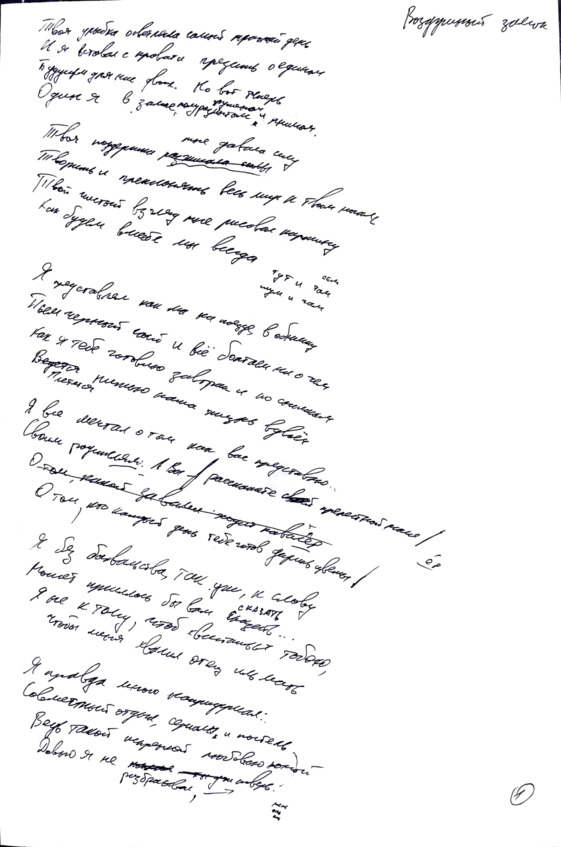 Воздушный замок
Твоя улыбка освещала самый мрачный день
И я вставал с кровати грезить о едином
Будущем для нас двоих. Но вот теперь
Один я в замке, полуразбитом, и мнимом.
мне давала силу
Твоя поддержка
Творить и преклонять весь мир к твоим ногам
Твой чистый взгляд мне рисовал картину
Как будем вместе мы всегда
тут и там
Я представлял как мы на поезде в обнимку
Пьем черный чай и всё болтаем ни о чем
Как я тебе готовлю завтрак и по снимкам
Ведется
Плетется нитью наша жизнь вдвоём
Я все мечтал о том как вас представлю..
Своим родителям. А Вы расскажете своей прелестной маме
О том, какой
О том, кто каждый день тебе готов дарить цветы
Я без бахвальства, так уж, к слову
Может пришлось бы вам сказать...
Я не к тому, чтоб хвастаться тобою,
Чтобы меня хвалил отец иль мать
Я правда много напридумал..
Совместный отдых, сериалы, и постель
Ведь такой искренной любовью
Давно я не
разбрасывал,
4